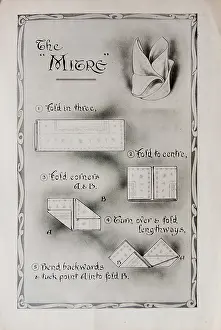 The
"MITRE"
① Fold in three,
② Fold to centre,
③ Fold corners
A & B.
B
A
④ Turn over & fold
lengthways,
A
B
⑤ Bend backwards
& tuck point A into fold B.